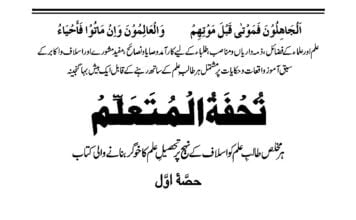 اَلْجَاهِلُوْنَ فَمَوْتٰی قَبْلَ مَوْتِهِمْ وَالْعَالِمُوْنَ وَاِنْ مَاتُوْا فَاَحْيَاءُ
علم اور علماء کے فضائل، ذمہ داریاں و مناصب طلباء کے لیے کارآمد وصایا و نصائح، مفید مشورے اور اسلاف و اکابر کے
سبق آموز واقعات و حکایات پر مشتمل ہر طالب علم کے ساتھ رہنے کے قابل ایک بیش بہا گنجینہ
تُحْفَةُ الْمُتَعَلِّمْ
ہر مخلص طالب علم کو اسلاف کے نہج پر تحصیل علم کا خوگر بنانے والی کتاب
حصّۂ اوّل